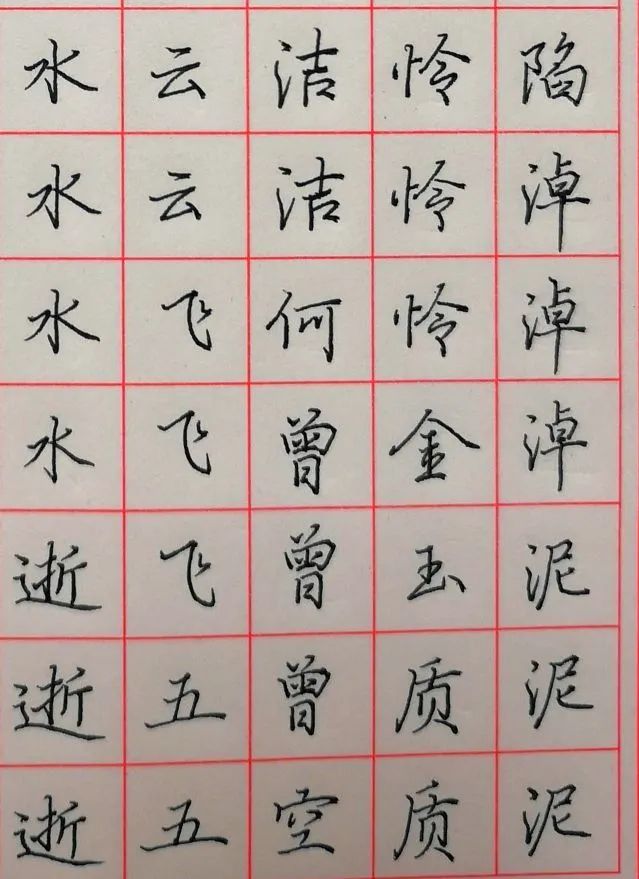 水水水水逝逝逝
云云飞飞飞五五
洁洁何曾曾曾空
怜怜怜金玉质质
陷淖淖淖泥泥泥